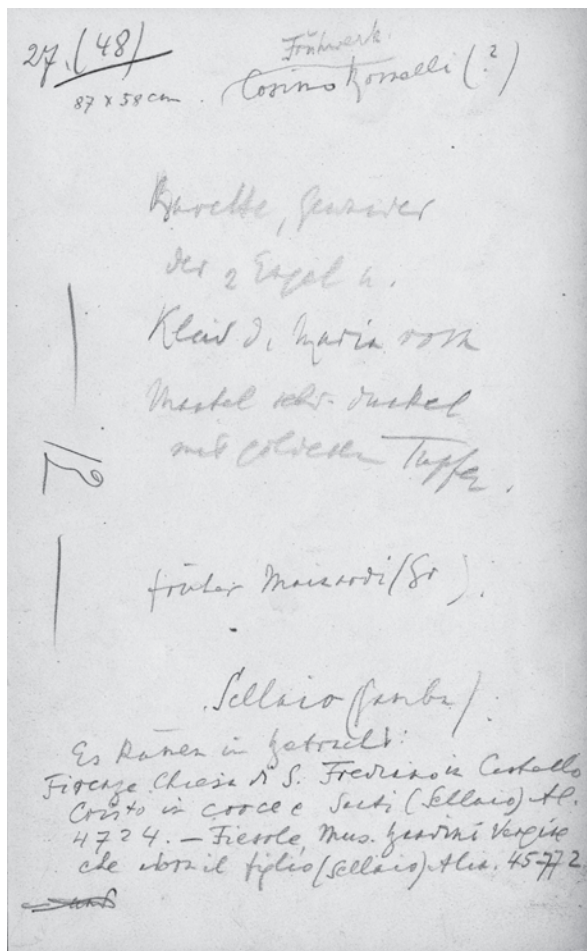 27. (48)
87 x 58 cm
Frühwerk
Cosimo Rosselli (?)
der 2 Engel u.
Kleid d. Maria rosa
Mantel sehr dunkel
mit goldenen Tupfen.
früher Mainardi (Gr ).
Sellaio (Gamba).
Es kämen in Betracht:
Firenze Chiesa di S. Frediano in Castello
Cristo in croce e Santi (Sellaio) Al.
4724. — Fiesole, Mus. Bandini Vergine
che adora il figlio (Sellaio) Alin. 45772